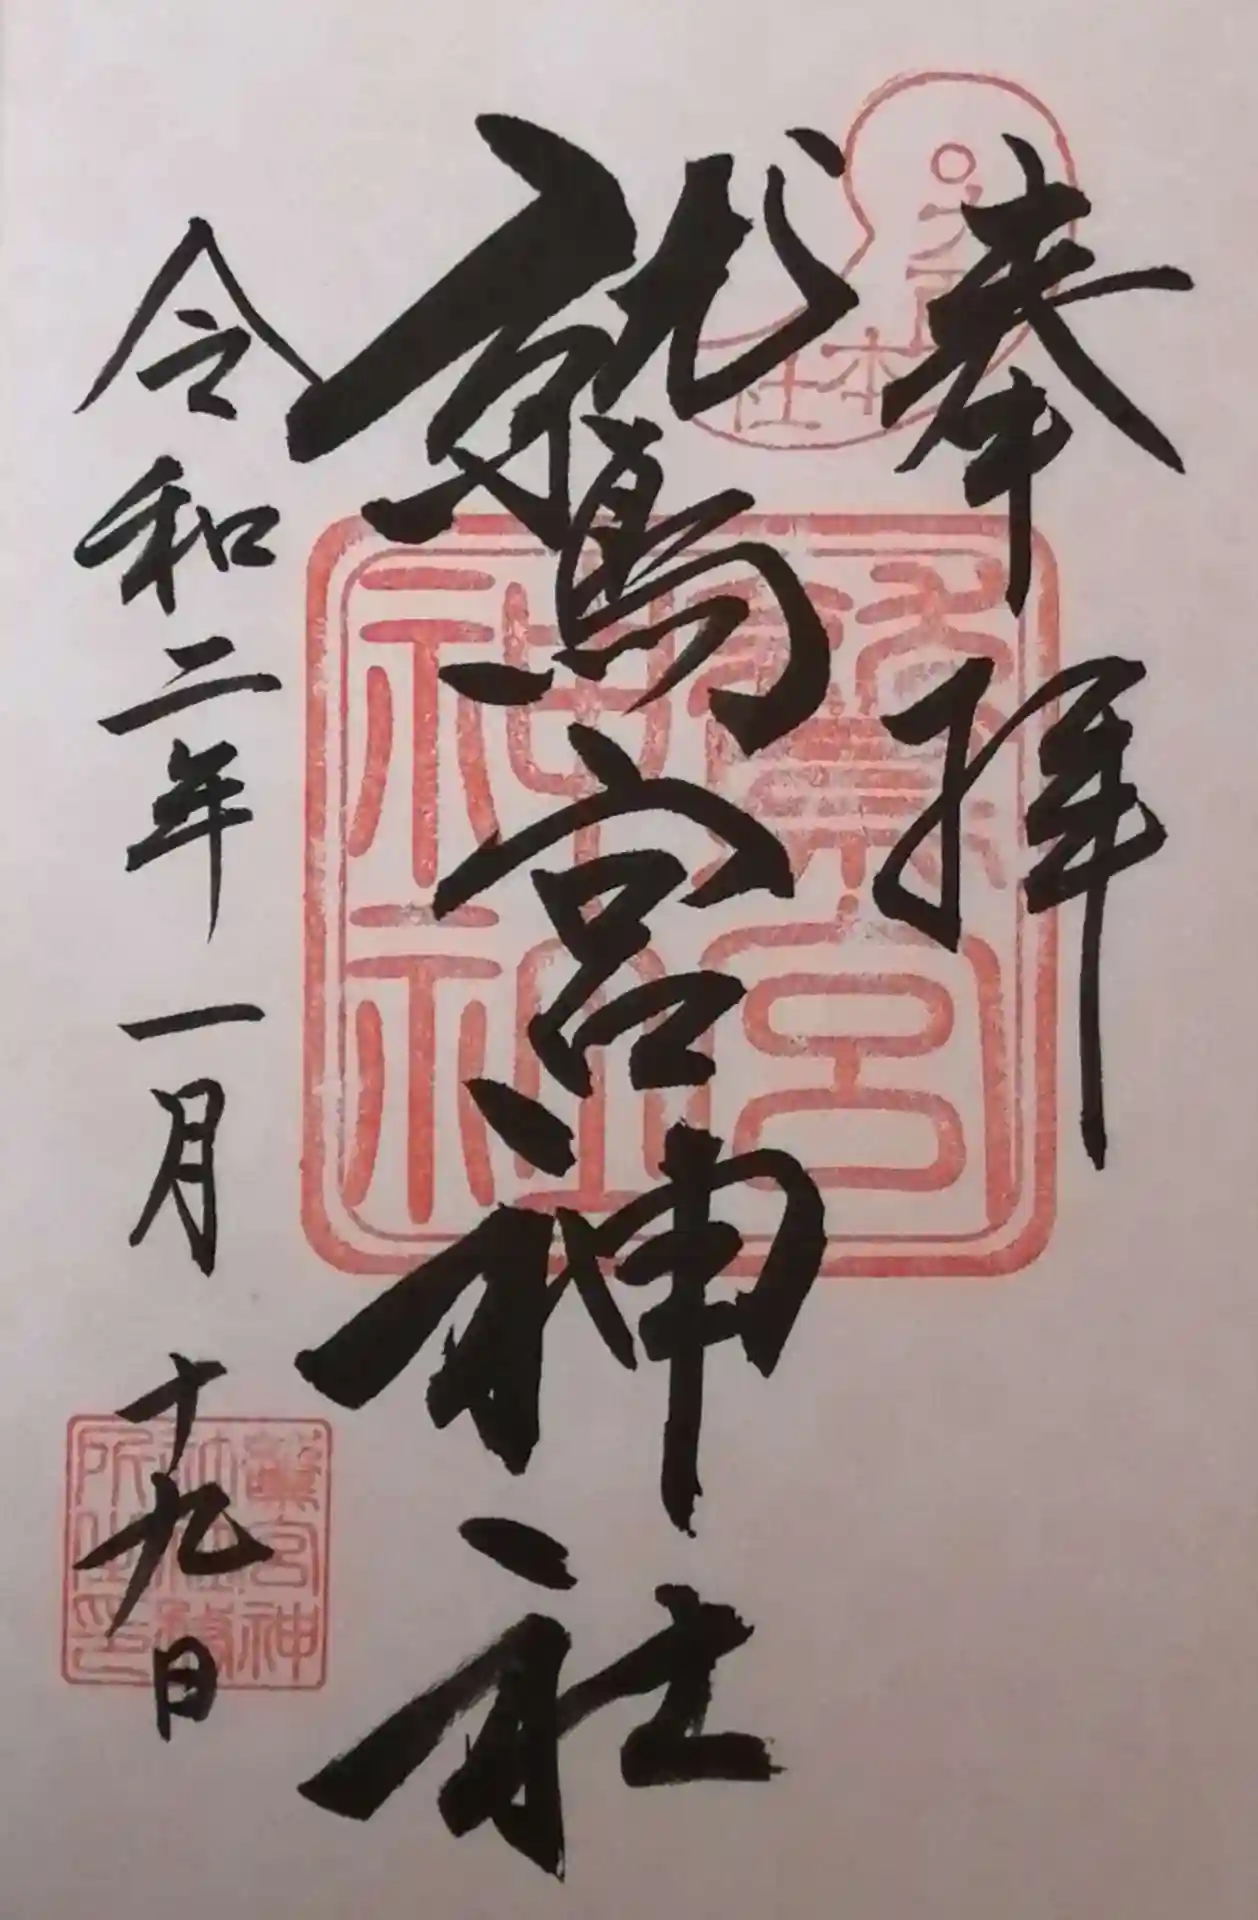 大酉本社
奉拝
鷲宮神社
鷲宮
神社
令和二年一月十九日
鷲宮神
社社務
所之印